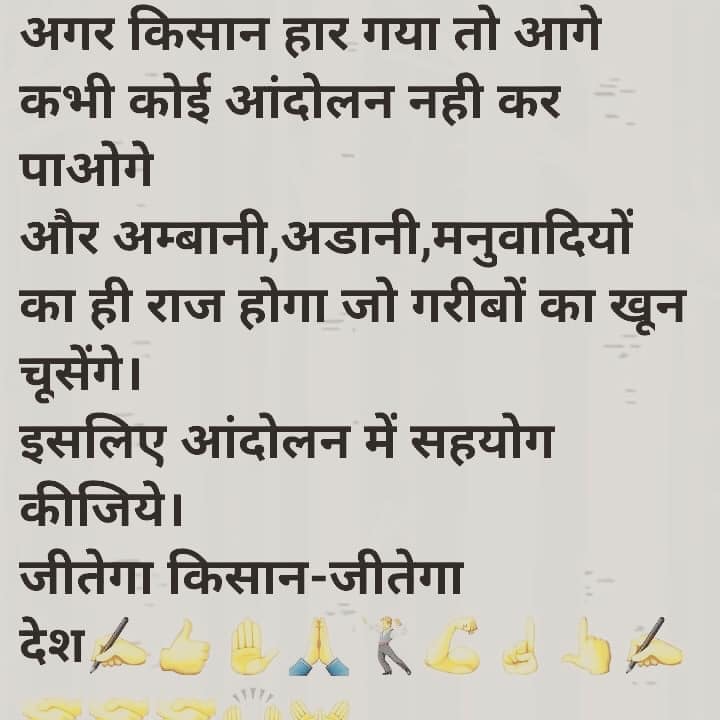 अगर किसान हार गया तो आगे
कभी कोई आंदोलन नही कर
पाओगे
और अम्बानी,अडानी,मनुवादियों
का ही राज होगा जो गरीबों का खून
चूसेंगे।
इसलिए आंदोलन में सहयोग
कीजिये।
जीतेगा किसान-जीतेगा
देश